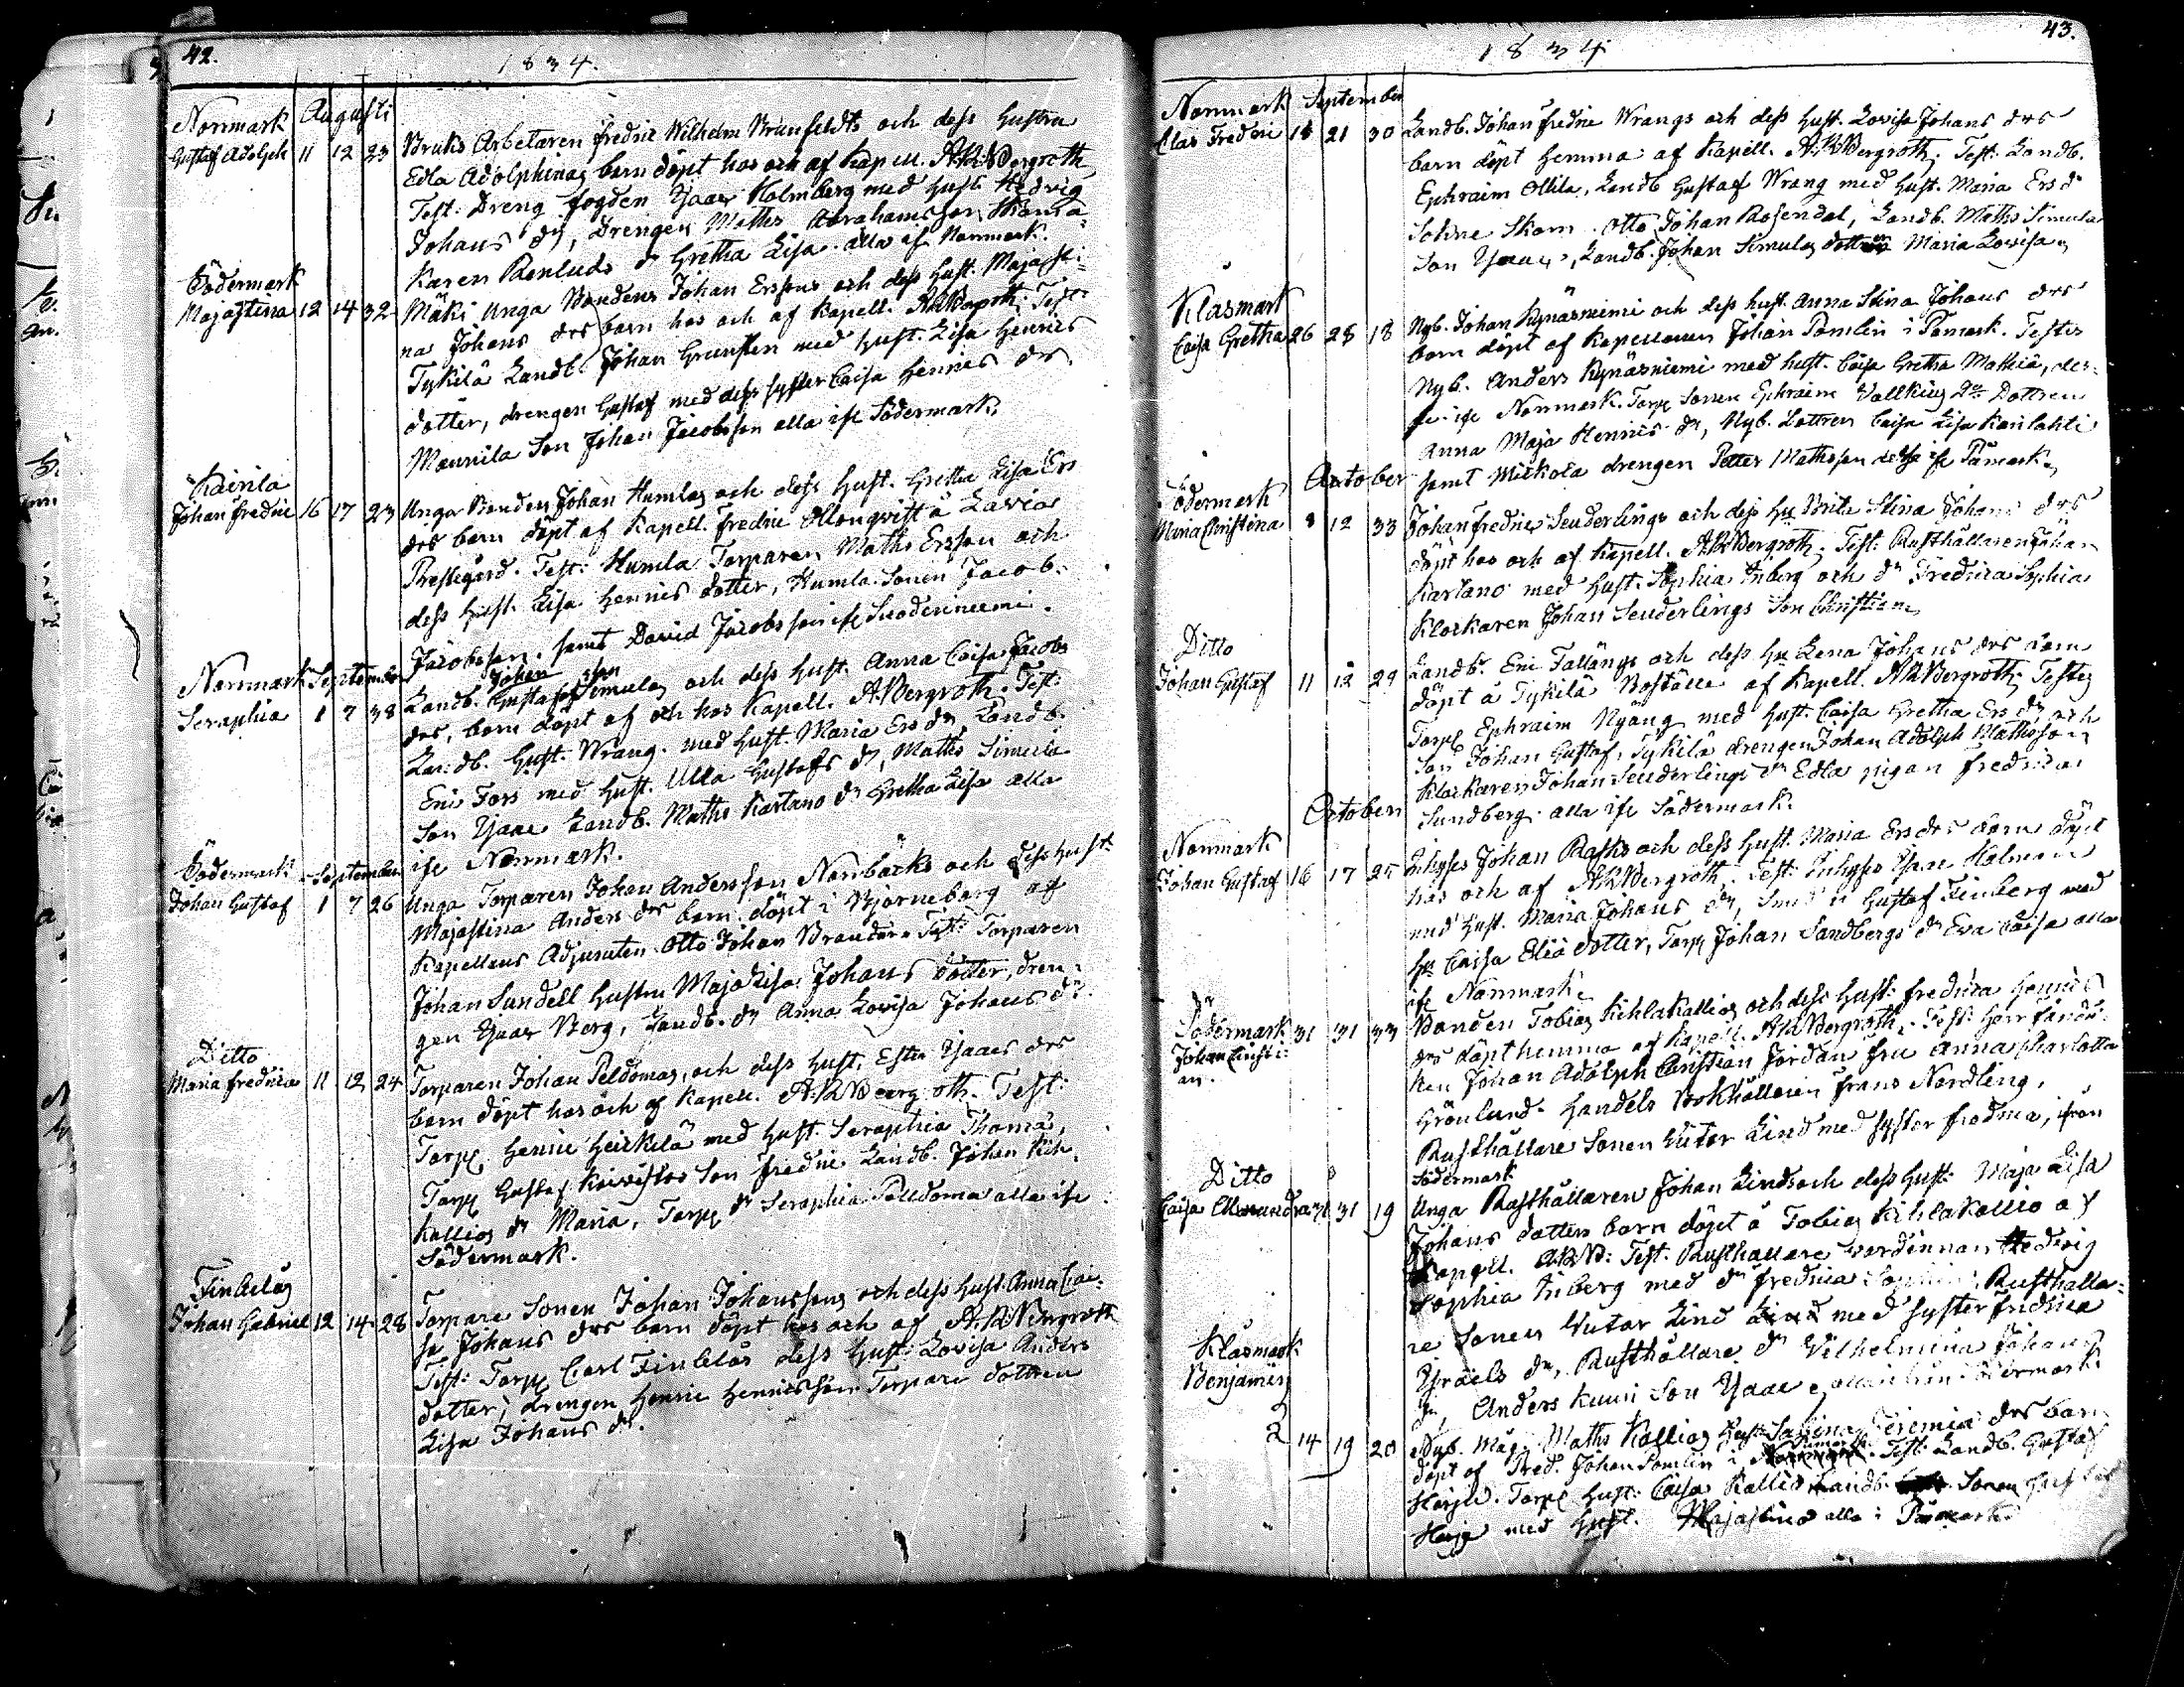 42.
1834.
Norrmark Augusti
Gustaf Adolph 11 12 23 Bruks Arbetaren Fredric Wilhelm Brunfeldts och dess Hustru
Edla Adolphinas barn döpt hos och af Kapell. A.R. Bergroth
Test: Dreng fogden Isaac Holmberg med Hust. Hedvig
Johans dr, Drengen Maths Abrahamsson, Skoma-
karen Renluds dr Gretha Lisa alla ifr Norrmark.
Södermark
Majastina 12 14 32 Mäki Unga Bondens Johan Erssons och dess Hust. Majasti-
nas Johans drs barn hos och af Kapell. Test:
Tykilä Landb. Johan Grunsten med Hust. Lisa Henrics
dotter, drengen Gustaf med dess syster Caisa Henrics dr
Maunila Son Johan Jacobsson alla ifr Södermark.
Kairila
Johan Fredric 16 17 23 Unga Bonden Johan Humlas och dess Hust. Gretha Lisa Ers
drs barn döpt af Kapell. Fredric Ollonqvist å Lavia
Prestegård. Test: Humla Torparen Maths Ersson och
dess Hust. Lisa Henrics dotter, Humla Sonen Jacob
Jacobsson, samt David Jacobsson ifr Suodeniemi.
Norrmark September
Johan son
Seraphia 1 7 38 Landb. Gustafs Simulas och dess Hust. Anna Caisa Jacobs
drs, barn döpt af och hos Kapell. A.Bergroth. Test:
Landb. Gust. Wrang med Hust. Maria Ers dr, Landb.
Eric Fors med Hust. Ulla Gustafs dr, Maths Simula
Son Isaac Landb. Maths Kartano dr Gretha Lisa alla
ifr Norrmark.
Södermark September
Johan Gustaf 1 7 26 Unga Torparen Johan Andersson Norrbäcks och dess Hust.
Majastina Anders drs barn döpt i Björneborg af
Kapellans Adjuncten Otto Johan Brander. Test: Torparen
Johan Sundell Hustru Maja Lisa Johans dotter, dren-
gen Isaac Berg, Landb. dr Anna Lovisa Johans dr.
Ditto
Maria Fredrica 11 12 24 Torparen Johan Peldomas, och dess Hust. Ester Isaacs drs
barn döpt hos och af Kapell. A.R. Bergroth. Test:
Torp. Henric Heickilä med Hust. Seraphia Thoma,
Torp. Gustaf Koivistos Son Fredric Landb. Johan Kih-
kallios dr Maria, Torp. dr Seraphia Peldoma alla ifr
Södermark.
Finkelas
Johan Gabriel 12 14 28 Torpare Sonen Johan Johanssons och dess Hust. Anna Cai-
sa Johans drs barn döpt hos och af A.R. Bergroth
Test: Torp. Carl Finkelas dess Hust. Lovisa Anders
dotter, drengen Henric Henricsson Torpare dottren
Lisa Johans dr.
43.
1834
Norrmark September
Clas Fredric 18 21 30 Landb. Johan Fredric Wrangs och dess Hust. Lovisa Johans drs
barn döpt hemma af Kapell. A.R. Bergroth. Test: Landb.
Ephraim Ollila, Landb. Gustaf Wrang med Hust. Maria Ers dr
Otto Johan Rosendal, Landb. Maths Simula
Son Isaac, Landb. Johan Simulas dottren Maria Lovisa
Klåsmark
Caisa Gretha 26 28 18 Nyb. Johan Kynäsniemi och dess Hust. Anna Stina Johans drs
barn döpt af Kapellanen Johan Pomlin i Påmark. Testes
Nyb. Anders Kynäsniemi med Hust. Caisa Gretha Mathiä, des-
se ifr Norrmark. Torp. Sonen Ephraim
Anna Maja Henrics dr, Nyb. Dottren Caisa Lisa Karilahti
October samt Miskola drengen Petter Mathsson dessa ifr Påmark.
Södermark
Maria Christina 8 12 33 Johan Fredric Seuderlings och dess Hu Brita Stina Johans drs
döpt hos och af Kapell. A.R. Bergroth. Test: Rusthållaren Johan
Kartano med Hust. Sophia Inberg och dr Fredrica Sophia
Klockaren Johan Seuderlings Son Christian
Ditto
Johan Gustaf 11 12 29 Landb. Eric Tallängs och dess Hu Lena Johans drs barn
döpt å Tykilä Boställe af Kapell. A.R. Bergroth. Testes
Torp. Ephraim Nyäng med Hust. Caisa Gretha Ers dr, och
Son Johan Gustaf, Tykilä drengen Johan Adolph Mathsson
Klockaren Johan Seuderlings dr Edla pigan Fredrica
October Sundberg alla ifr Södermark.
Norrmark
Johan Gustaf 16 17 25 Inhyses Johan Rasks och dess Hust. Maria Ers drs barn döpt
hos och af A.R. Bergroth. Test: Inhyses Isaac Holmen
med Hust. Maria Johans dr, Gustaf Finberg med
Hu Caisa Eliä dotter, Torp. Johan Sandbergs dr Eva Caisa alla
ifr Norrmark.
Södermark 31 31 33 Bonden Tobias Kihlakallios och dess Hust. Fredrica Henrics
Johan Christi-
an.
drs döpt hemma af Kapell. A.R. Bergroth. Test: Herr Fändri-
ken Johan Adolph Christian Jordan fru Anna Charlotta
Grönlund. Handels Bokhållaren Frans Nordling,
Rusthållare Sonen Victor Lind med syster Fredrica, från
Södermark
Ditto
Caisa 31 31 19 Unga Rusthållaren Johan Linds och dess Hust. Maja Lisa
Johans dotters barn döpt å Tobias Kihlakallio af
Kapell. ARB: Test: Rusthållare wärdinnan Hedvig
Sophia Inberg med dr Fredrica Sophia, Rusthålla-
re Sonen Victor Lind med syster Fredrica
Israels dr, Rusthållare dr Vilhelmina Johans
dr, Anders Kuusi Son Isaac
Klåsmark
Benjamin
2 14 19 20 Nyb. Måg Maths Kallios Hust. Sabina Jeremiä drs barn
döpt af Pred. Johan Pomlin i Påmark. Test: Landb. Gustaf
Harju. Torp. Hust. Caisa Kallio Landb. Sonen
Harju med Hust. Majastina alla i Påmark.